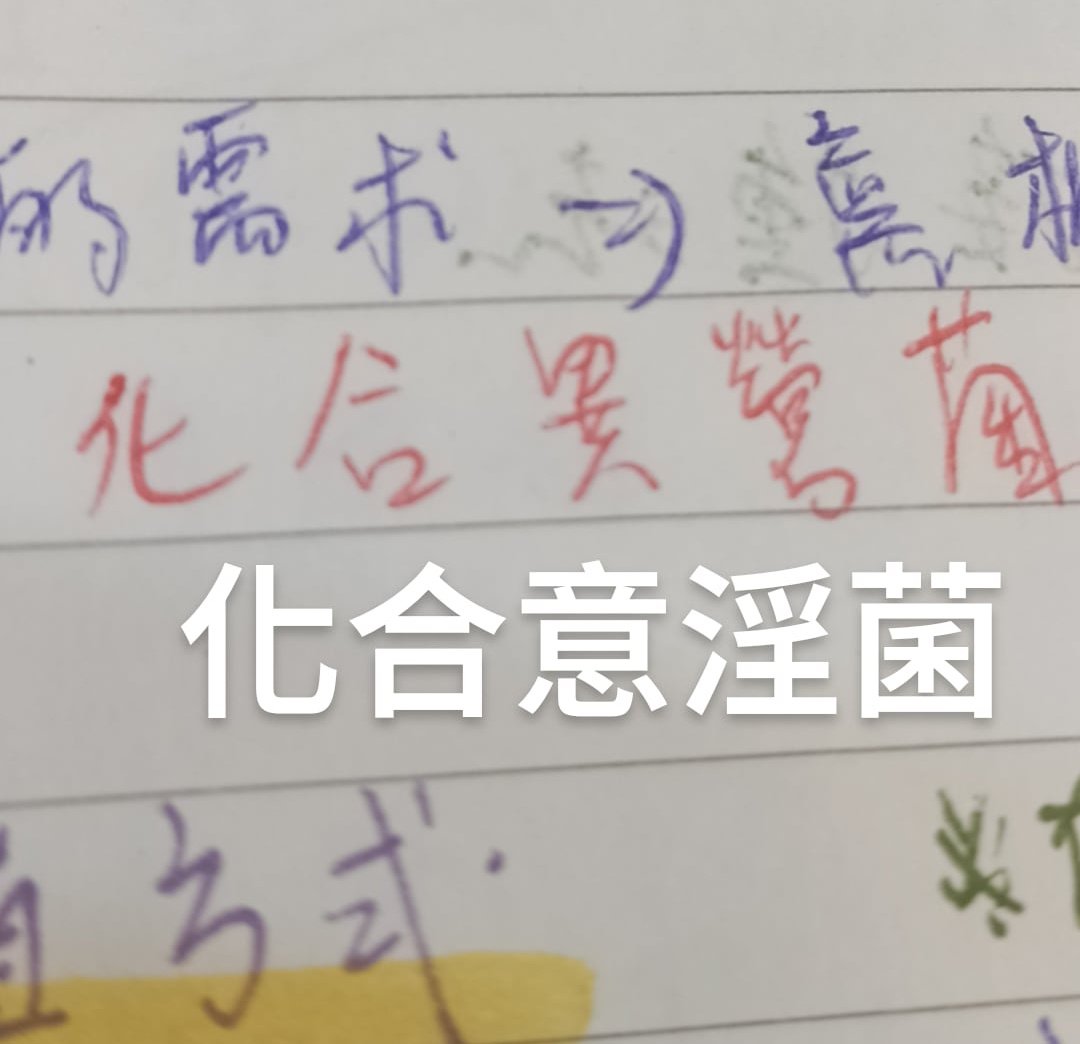 的需求→真
化合異營菌
化合意淫菌
方式.